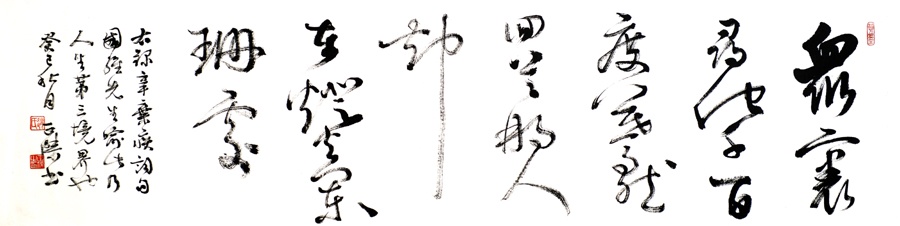 眾裏
尋他千百
度驀然
回首那人
却
在燈火闌
珊處
右録辛棄疾詞句
國維先生喻此乃
人生第三境界也
癸巳 月 書